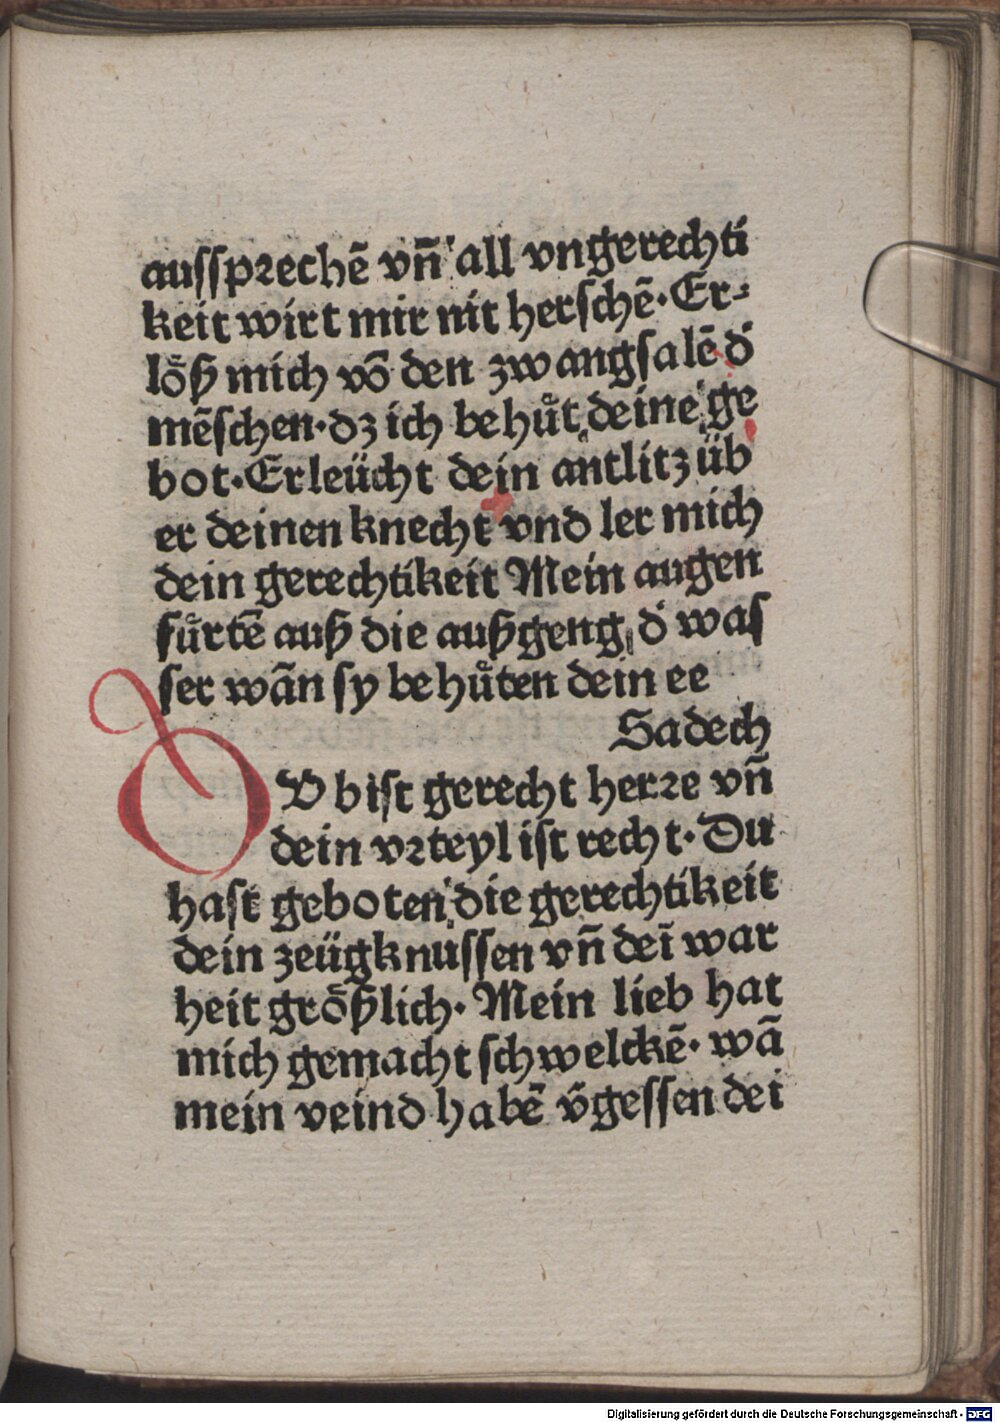 ausſpꝛechē vn̄ all vngerechti
keit wirt mir nit herſchē· Er⸗
löß mich vō den zwangſalē d̕
mēſchen· dz ich behuͦt deine ge
bot· Erleücht dein antlitz üb
er deinen knecht vnd ler mich
dein gerechtikeit Mein augen
fuͦrtē auß die außgeng d̕ waſ
ſer wān ſy behuͦten dein ee
Sadech
DV biſt gerecht herꝛe vn̄
dein vꝛteyl iſt recht· Du
haſt geboten die gerechtikeit
dein zeügknuſſen vn̄ deī war
heit größlich· Mein lieb hat
mich gemacht ſchwelckē· wā
mein veind habē v̄geſſen dei
Digitalisierung gefördert durch die Deutsche Forschungsgemeinschaft - DFG